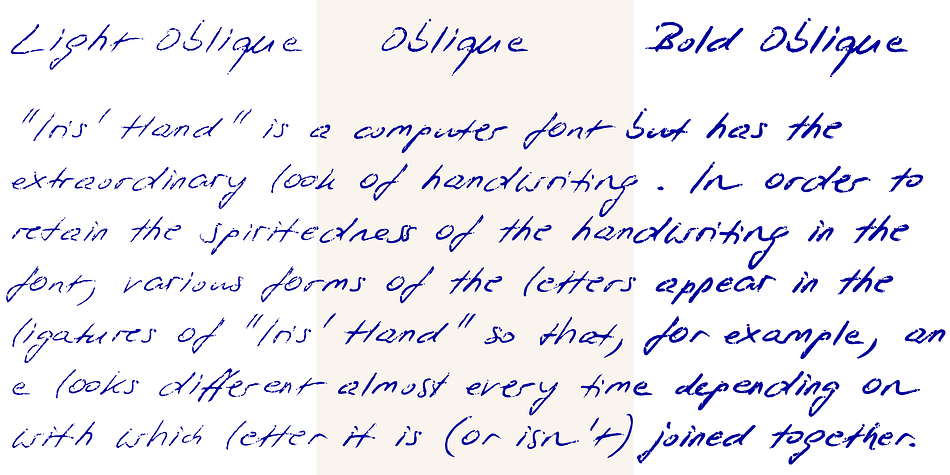 Light Oblique Oblique Bold Oblique
"Iris' Hand" is a computer font but has the
extraordinary look of handwriting. In order to
retain the spiritedness of the handwriting in the
font, various forms of the letters appear in the
ligatures of "Iris' Hand" so that, for example, an
e looks different almost every time depending on
with which letter it is (or isn't) joined together.